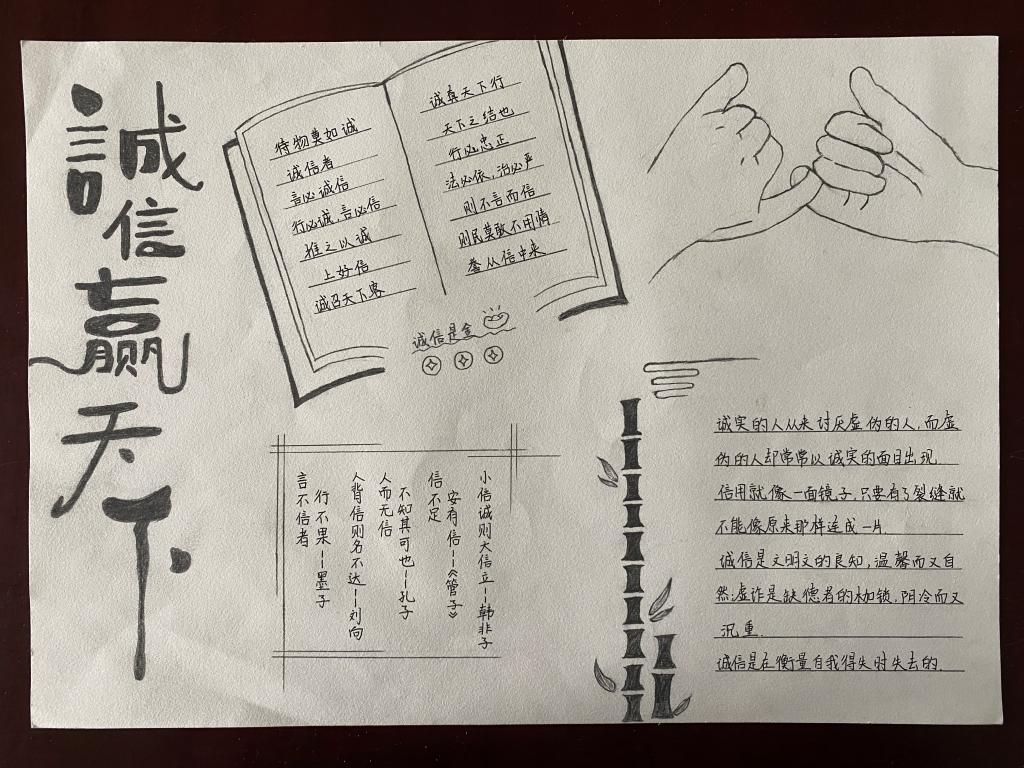 誠信赢天下
待物莫如诚
诚信者
言必诚信
行必诚,言必信
推之以诚
上好信
诚召天下客
诚真天下行
天下之结也
行必忠正
法必依,治必严
则不言而信
则民莫敢不用情
誉从信中来
诚信是金
小信诚则大信立--韩非子
安有信--《管子》
信不足
不知其可也--孔子
人而无信
人背信则名不达--刘向
行不果--墨子
言不信者
诚实的人从来讨厌虚伪的人,而虚
伪的人却常常以诚实的面目出现.
信用就像一面镜子,只要有了裂缝就
不能像原来那样连成一片.
诚信是文明文的良知,温馨而又自
然;虚诈是缺德者的枷锁,阴冷而又
沉重.
诚信是在衡量自我得失时失去的.